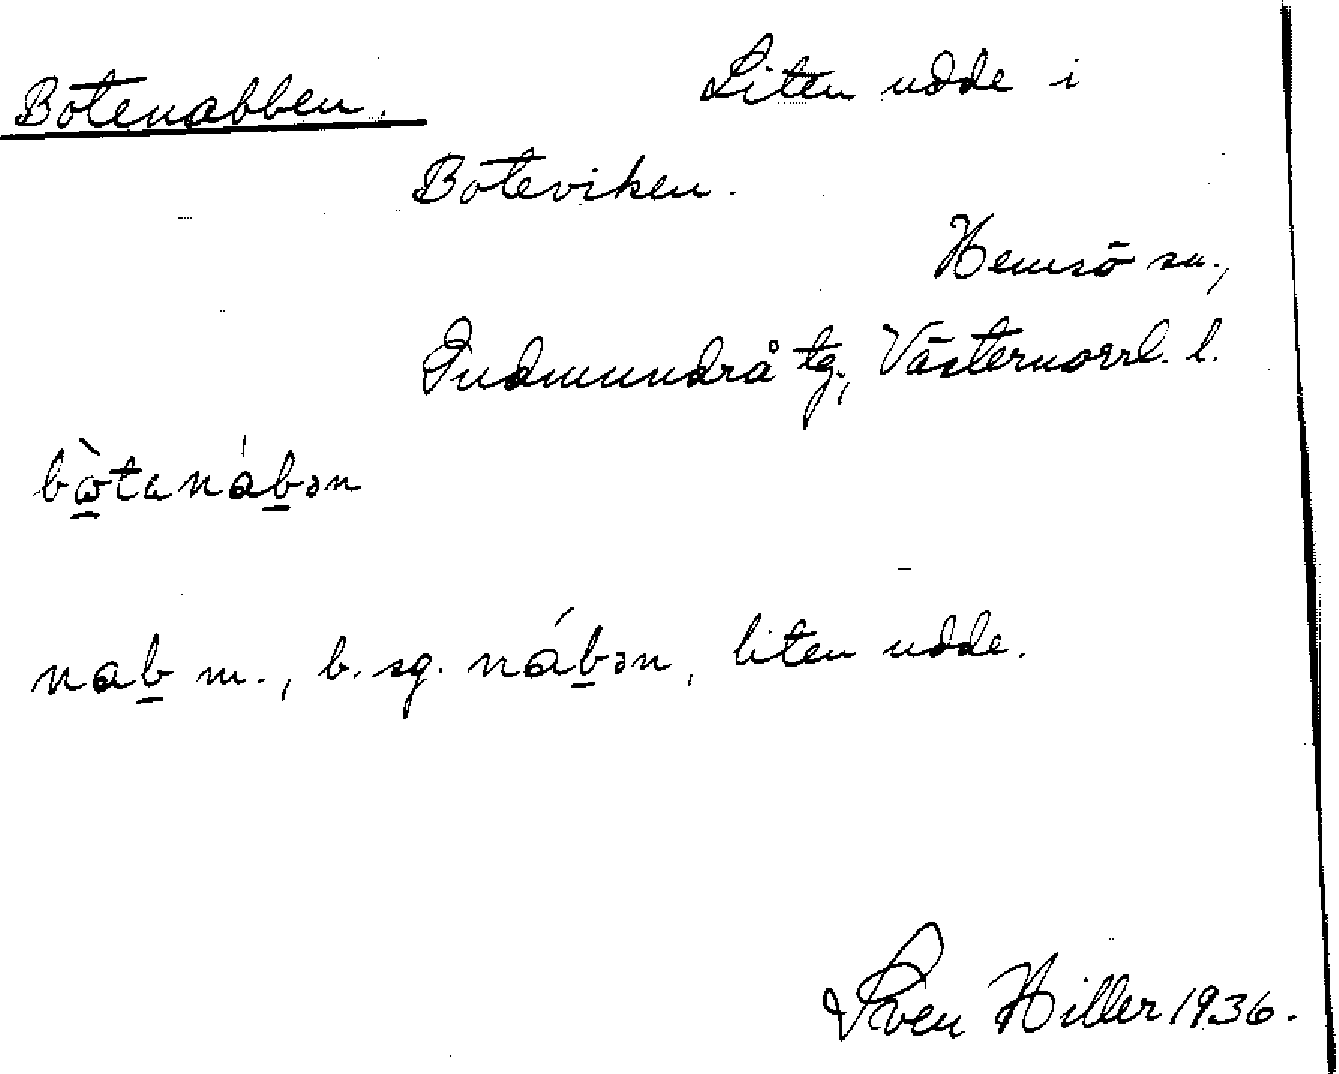 Botenabben. Liten udde i
Boteviken.
Hemsö sn.,
Gudmundrå tg., Västernorrl. l.
bὼ̱tanáḇən
naḇ m., b. sg. náḇən, liten udde.
Sven Hiller 1936.